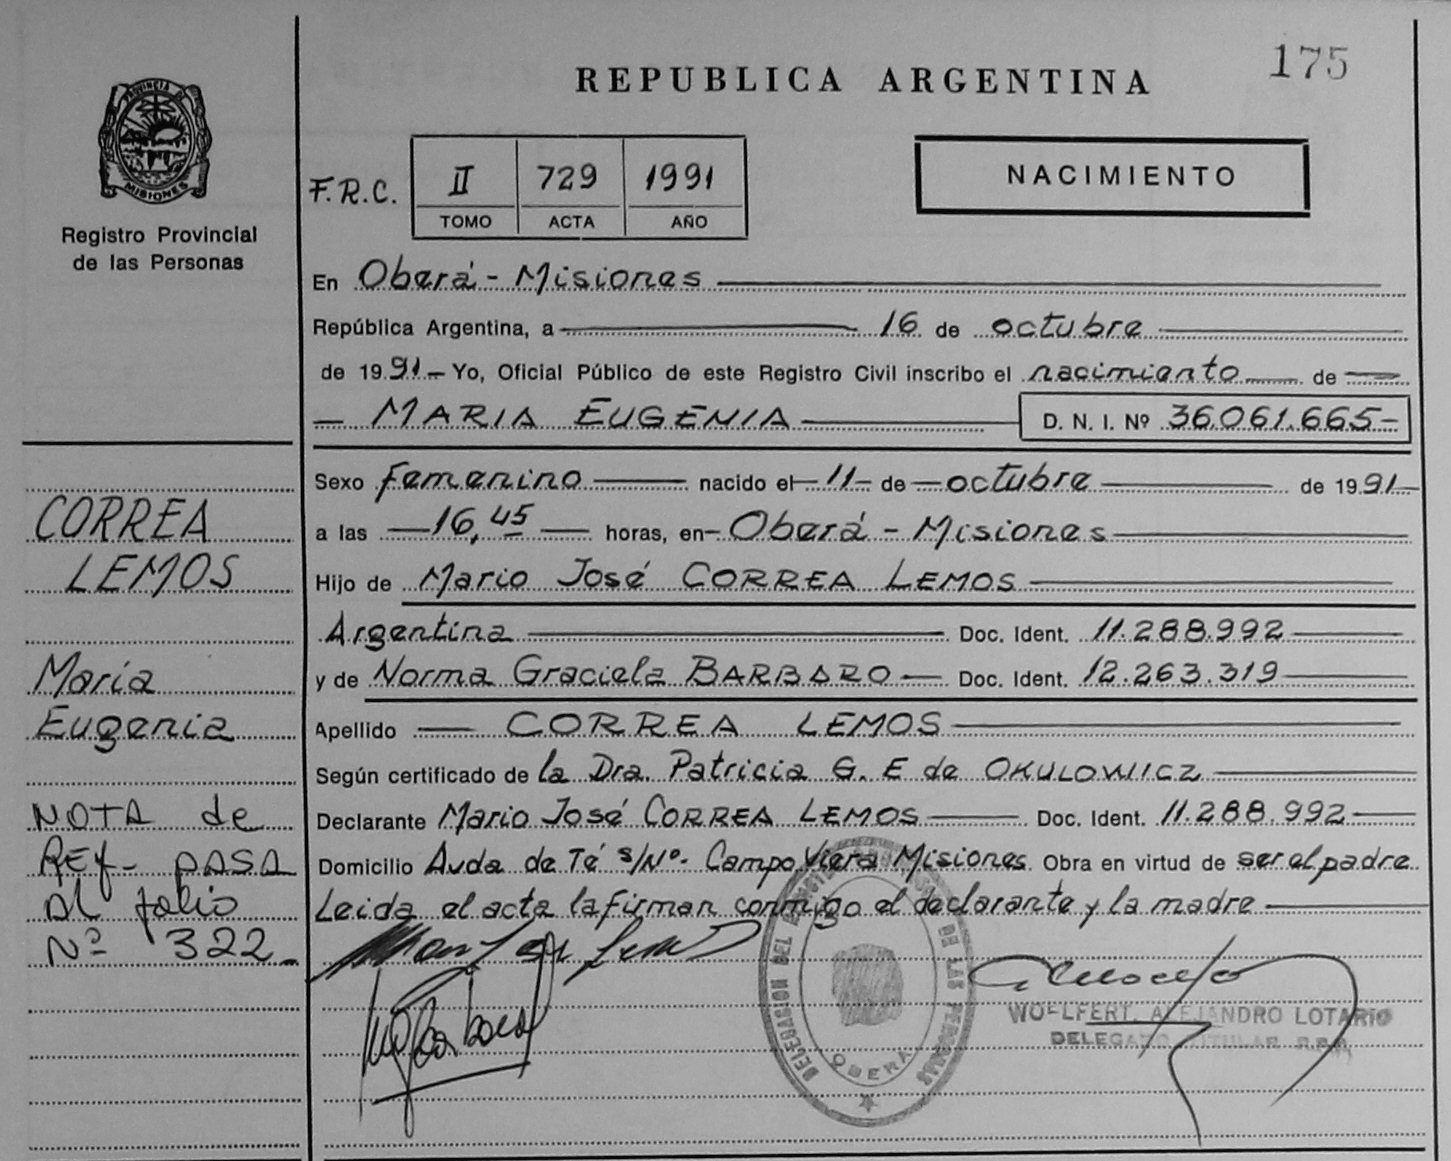 175
REPUBLICA ARGENTINA
PROVINCIA DE
MISIONES
Registro Provincial
de las Personas
F.R.C.
II 729 1991
TOMO ACTA AÑO
NACIMIENTO
En Oberá - Misiones
República Argentina, a 16 de octubre
de 1991 - Yo, Oficial Público de este Registro Civil inscribo el nacimiento de
MARIA EUGENIA D. N. I. Nº 36.061.665-
Sexo femenino nacido el 11 de octubre de 1991
a las 16,45 horas, en Oberá - Misiones
Hijo de Mario José CORREA LEMOS
Argentina Doc. Ident. 11.288.992
y de Norma Graciela BARBARO Doc. Ident. 12.263.319
Apellido CORREA LEMOS
Según certificado de la Dra. Patricia G. E de OKULOWICZ
Declarante Mario José CORREA LEMOS Doc. Ident. 11.288.992
Domicilio Avda de Té s/Nº. Campo Viera Misiones. Obra en virtud de ser el padre
Leida el acta la firman conmigo el declarante y la madre
CORREA
LEMOS
María
Eugenia
NOTA de
Ref- PASA
al folio
Nº 322-
DELEGACION DEL REGISTRO DE LAS PERSONAS
OBERA
WOELFERT, ALEJANDRO LOTARIO
DELEGADO TITULAR